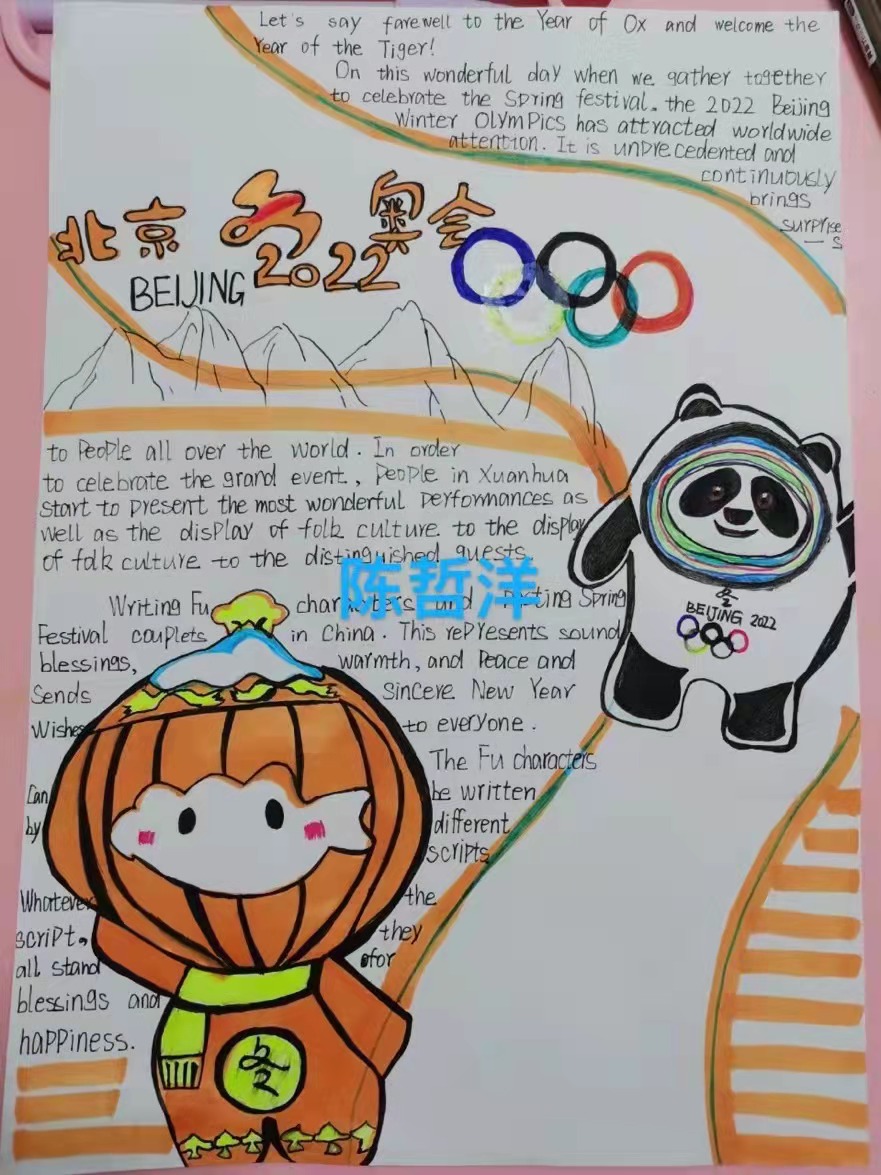 Let's say farewell to the Year of Ox and welcome the
Year of the Tiger!
On this wonderful day when we gather together
to celebrate the Spring festival. the 2022 Beijing
Winter Olympics has attracted worldwide
attention. It is unprecedented and
continuously
brings
surprise
— s
北京冬奥会
BEIJING 2022
to people all over the world. In order
to celebrate the grand event, people in Xuanhua
start to present the most wonderful performances as
well as the display of folk culture. to the display
of folk culture to the distinguished guests.
陈哲洋
Writing Fu characters and posting Spring
Festival couplets in China. This represents sound
blessings, warmth, and Peace and
Sends sincere New Year
Wishes to everyone.
The Fu characters
Can be written
by different
scripts
Whatever the
script, they
all stand ofor
blessings and
happiness.
冬
BEIJING 2022
冬